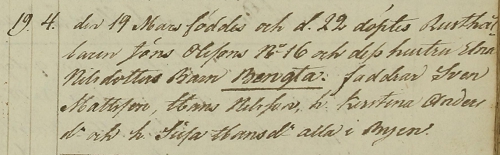 19. 4. den 19 Mars föddes och d. 22 döptes Rusthål-
laren Jöns Olssons No 16 och dess hustru Elna
Nilsdotters Barn Bengta. faddrar Sven
Mattsson, Hans Nilsson, h. Kerstina Anders
dr och h. Sissa Hansdr alla i Byen.